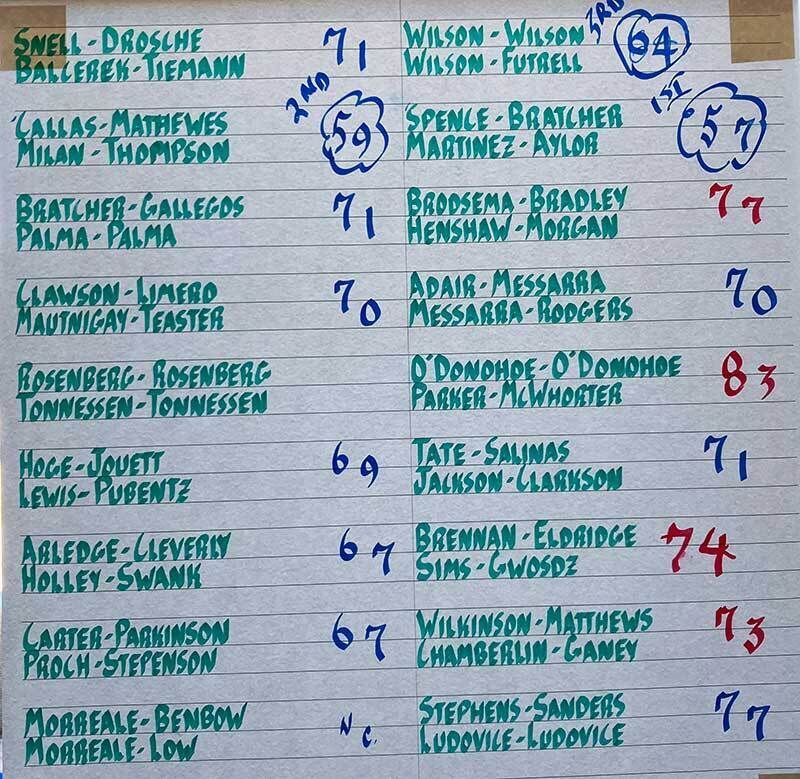 SNELL-DROSCHE 71
BALCEREK-TIEMANN
2ND
CALLAS-MATHEWES 59
MILAN-THOMPSON
BRATCHER-GALLEGOS 71
PALMA-PALMA
CLAWSON-LIMERO 70
MAUTNIGAY-TEASTER
ROSENBERG-ROSENBERG
TONNESSEN-TONNESSEN
HOGE-JOUETT 69
LEWIS-PUBENTZ
ARLEDGE-CLEVERLY 67
HOLLEY-SWANK
CARTER-PARKINSON 67
PROCH-STEPENSON
MORREALE-BENBOW NC.
MORREALE-LOW
WILSON-WILSON 3RD 64
WILSON-FUTRELL
1ST
SPENCE-BRATCHER 57
MARTINEZ-AYLOR
BRODSEMA-BRADLEY 77
HENSHAW-MORGAN
ADAIR-MESSARRA 70
MESSARRA-RODGERS
O'DONOHOE-O'DONOHOE 83
PARKER-MCWHORTER
TATE-SALINAS 71
JACKSON-CLARKSON
BRENNAN-ELDRIDGE 74
SIMS-GWOSDZ
WILKINSON-MATTHEWS 73
CHAMBERLIN-GANEY
STEPHENS-SANDERS 77
LUDOVICE-LUDOVICE